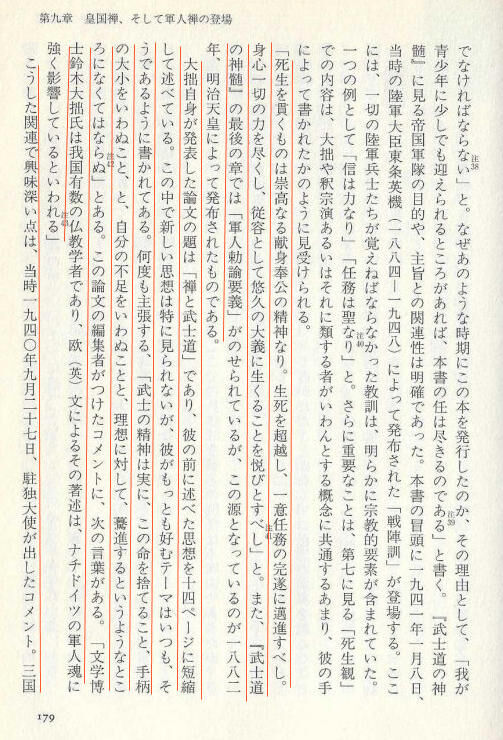 第九章　皇国禅、そして軍人禅の登場
でなければならない」と。なぜあのような時期にこの本を発行したのか、その理由として、「我が
注38
青少年に少しでも迎えられるところがあれば、本書の任は尽きるのである」と書く。『武士道の神
注39
髄』に見る帝国軍隊の目的や、主旨との関連性は明確であった。本書の冒頭に一九四一年一月八日、
当時の陸軍大臣東条英機（一八八四―一九四八）によって発布された「戦陣訓」が登場する。ここ
には、一切の陸軍兵士たちが覚えねばならなかった教訓は、明らかに宗教的要素が含まれていた。
一つの例として「信は力なり」「任務は聖なり」と。さらに重要なことは、第七に見る「死生観」
注40
での内容は、大拙や釈宗演あるいはそれに類する者がいわんとする概念に共通するあまり、彼の手
によって書かれたかのように見受けられる。
「死生を貫くものは崇高なる献身奉公の精神なり。生死を超越し、一意任務の完遂に邁進すべし。
身心一切の力を尽くし、従容として悠久の大義に生くることを悦びとすべし」と。また、『武士道
注41
の神髄』の最後の章では「軍人勅諭要義」がのせられているが、この源となっているのが一八八二
年、明治天皇によって発布されたものである。
大拙自身が発表した論文の題は「禅と武士道」であり、彼の前に述べた思想を十四ページに短縮
して述べている。この中で新しい思想は特に見られないが、彼がもっとも好むテーマはいつも、そ
うであるように書かれてある。何度も主張する、「武士の精神は実に、この命を捨てること、手柄
の大小をいわぬこと、と、自分の不足をいわぬことと、理想に対して、驀進するというようなとこ
ろになくてはならぬ」とある。この論文の編集者がつけたコメントに、次の言葉がある。「文学博
注42
士鈴木大拙氏は我国有数の仏教学者であり、欧（英）文によるその著述は、ナチドイツの軍人魂に
強く影響しているといわれる」
注43
こうした関連で興味深い点は、当時一九四〇年九月二十七日、駐独大使が出したコメント。三国
179